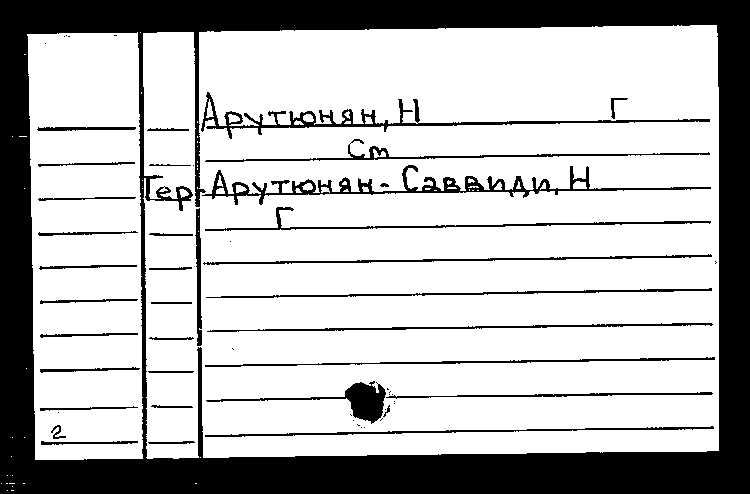 Арутюнян, Н Г
См
Тер-Арутюнян-Саввиди, Н
Г
2